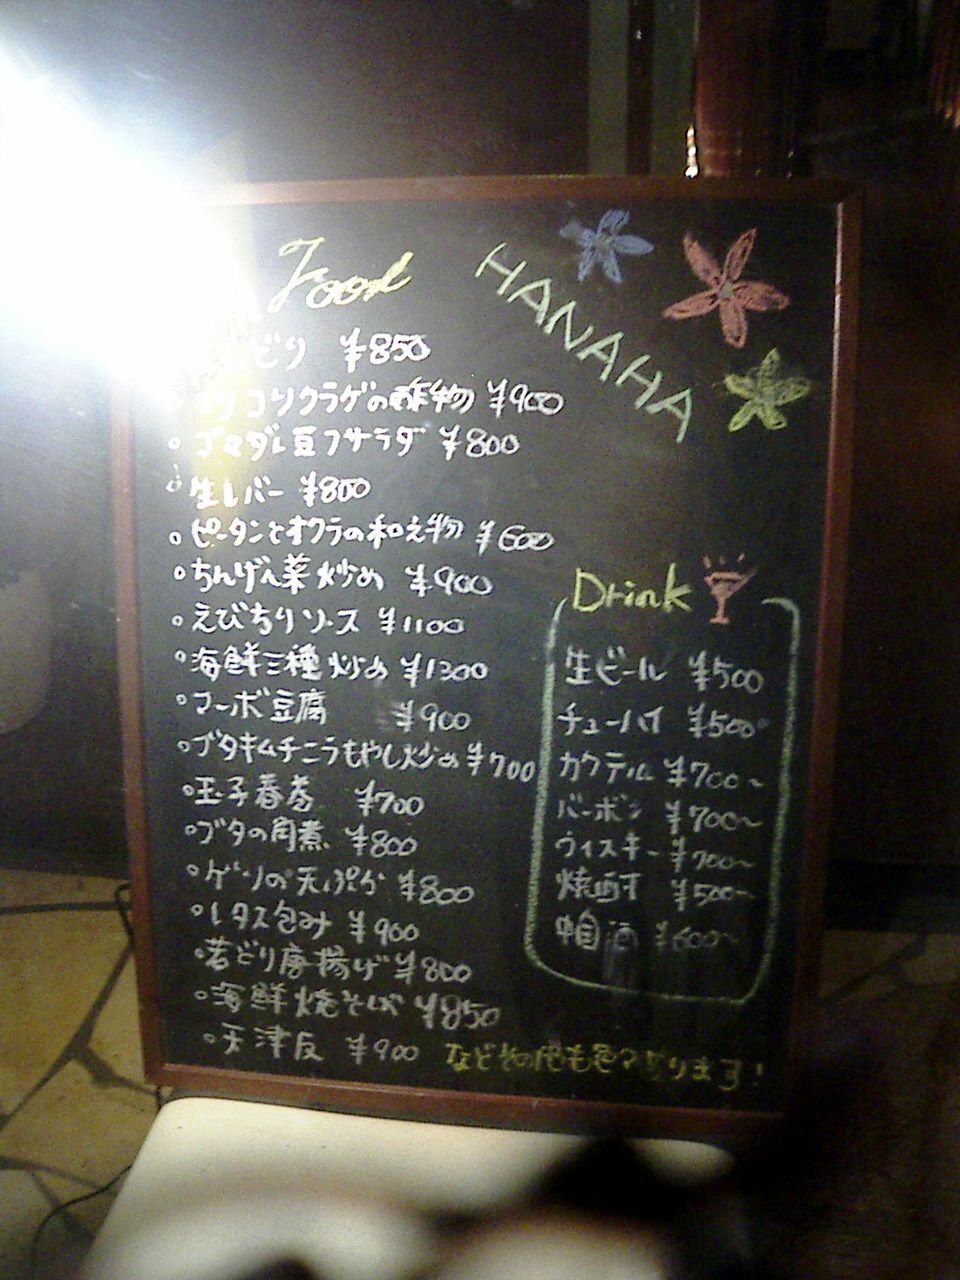 Food
HANAHA
どり ¥850
コリクラゲの酢物 ¥900
ゴマダレ豆フサラダ ¥800
生レバー ¥800
ピータンとオクラの和え物 ¥600
ちんげん菜炒め ¥900
えびちりソース ¥1100
海鮮三種炒め ¥1300
マーボ豆腐 ¥900
ブタキムチニラもやし炒め ¥700
玉子春巻 ¥700
ブタの角煮 ¥800
の天ぷら ¥800
レタス包み ¥900
若どり唐揚げ ¥800
海鮮焼そば ¥850
天津反 ¥900
などその他も色々あります!
Drink
生ビール ¥500
チューハイ ¥500
カクテル ¥700~
バーボン ¥700~
ウィスキー ¥700~
焼酎 ¥500~
中国酒 ¥600~